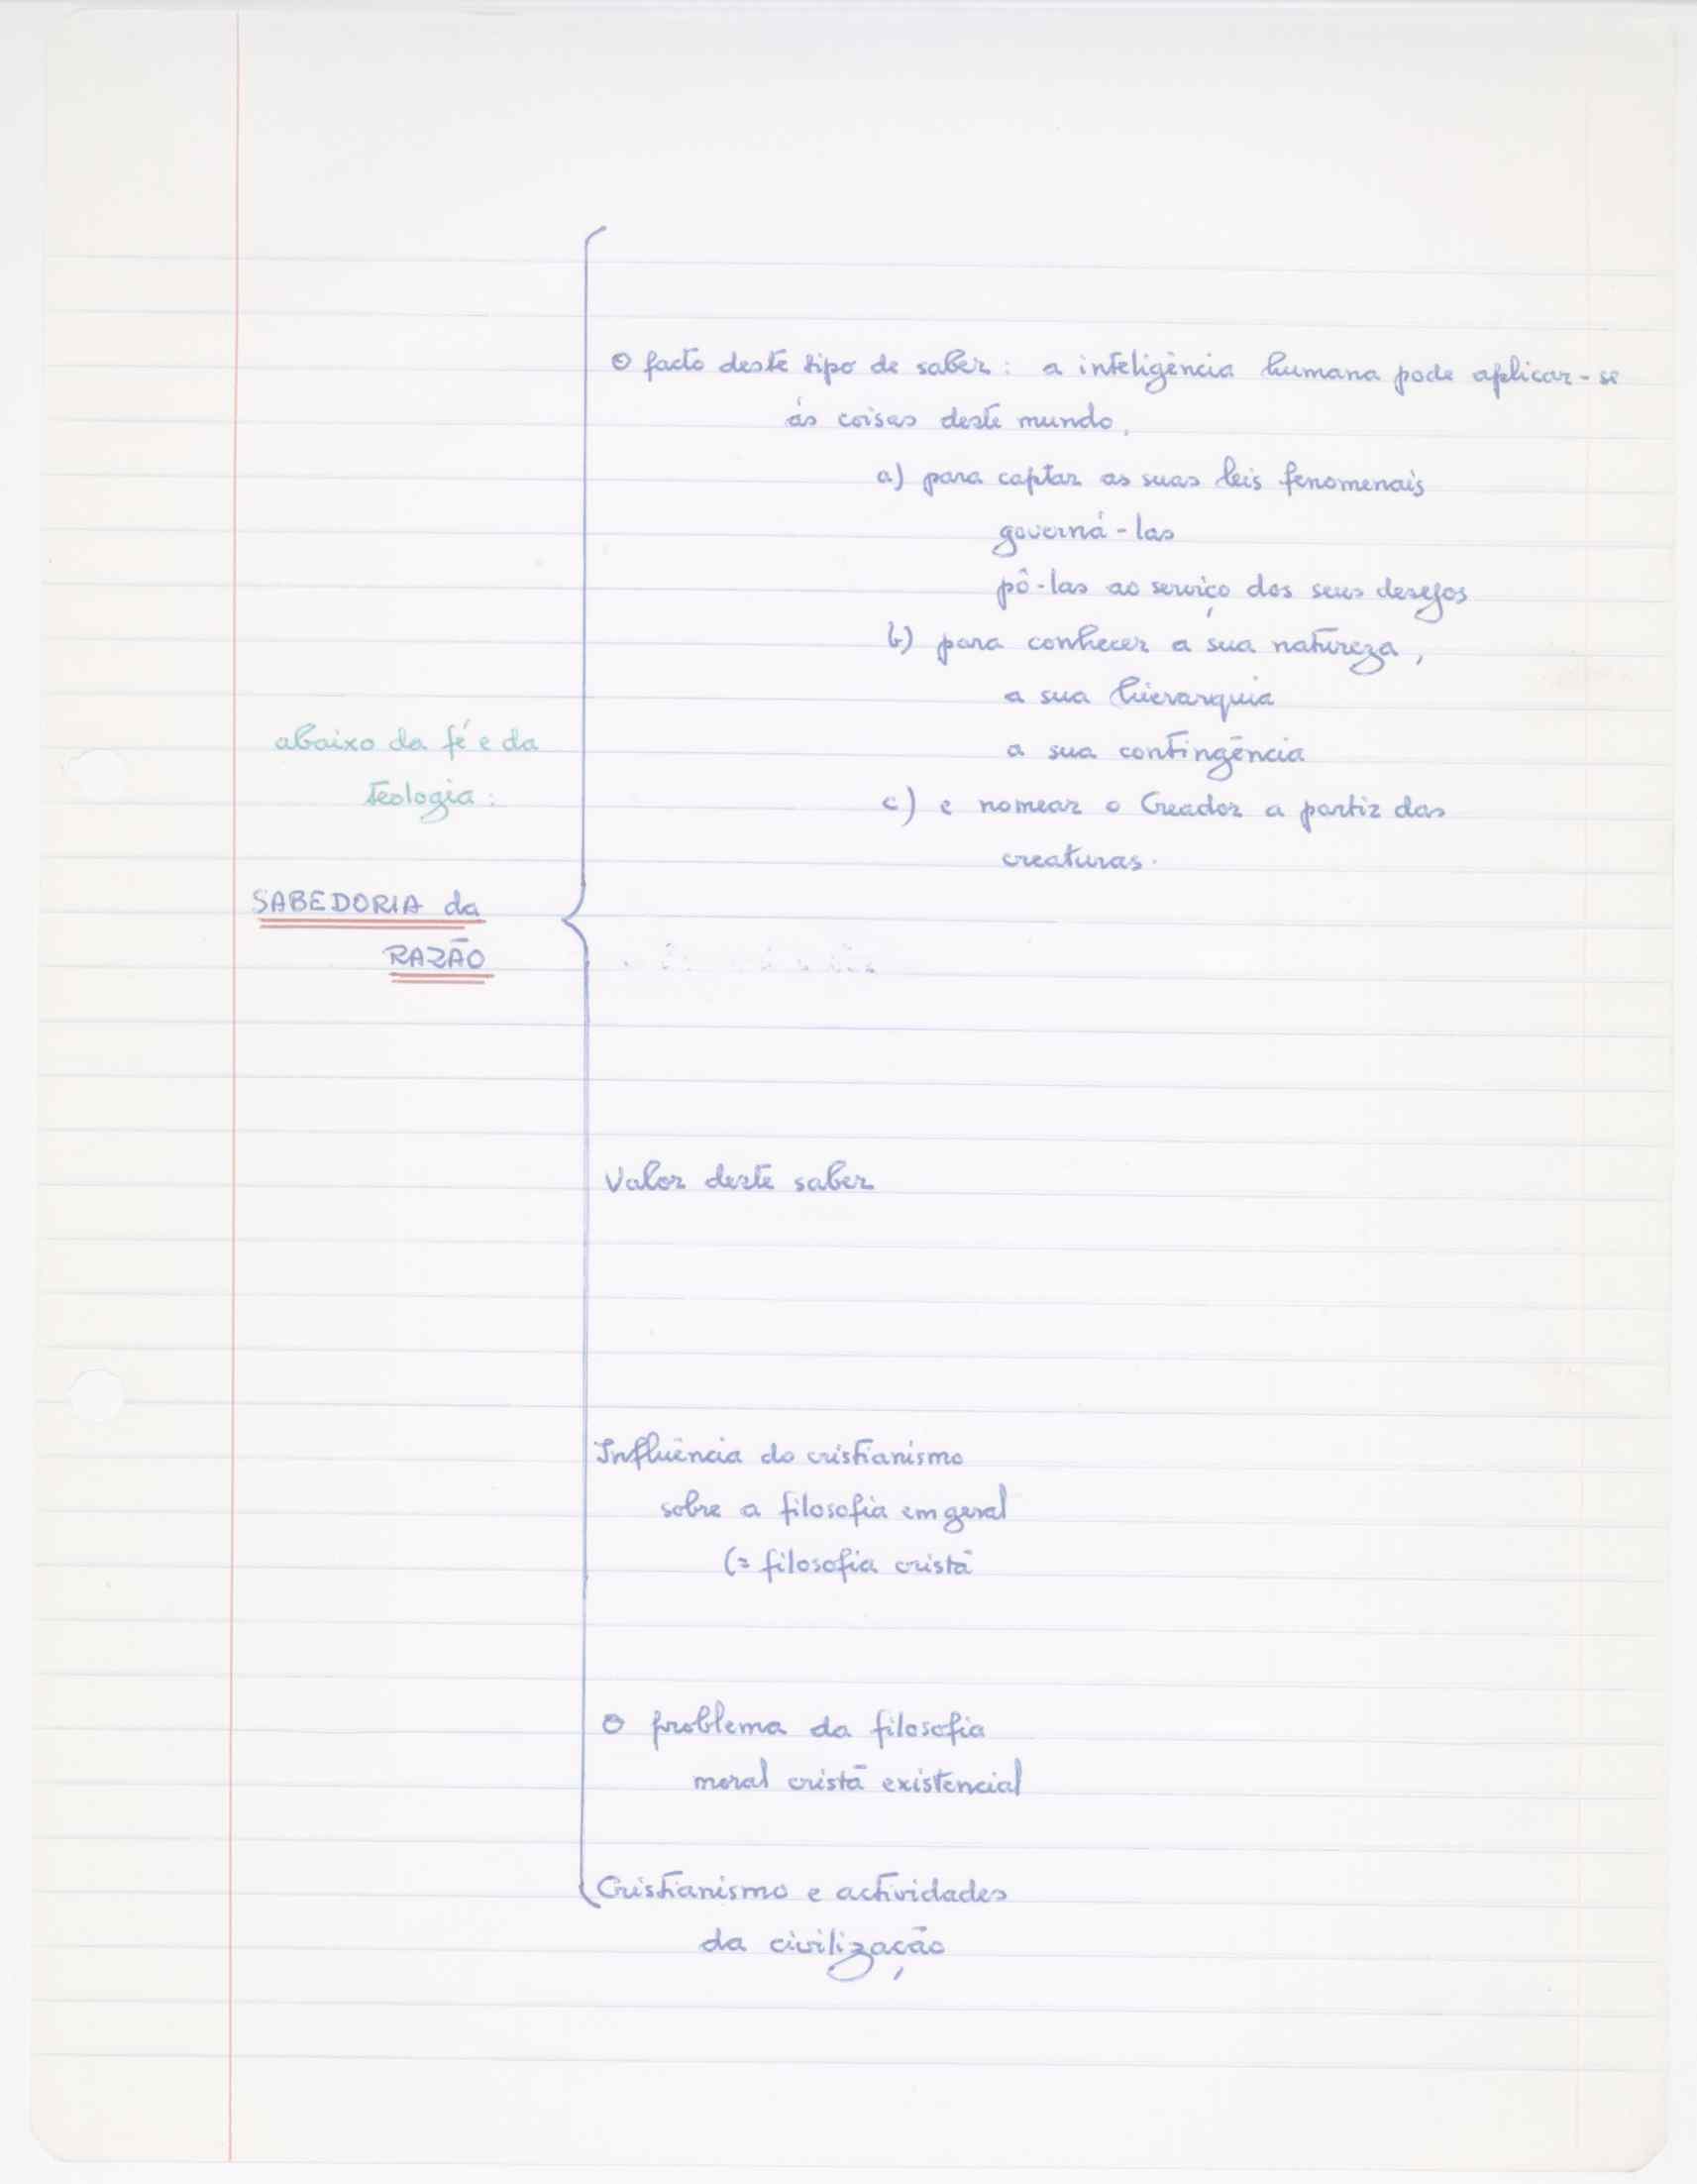 O facto deste tipo de saber: a inteligência humana pode aplicar-se
ás coisas deste mundo,
a) para captar as suas leis fenomenais
governá-las
pô-las ao serviço dos seus desejos
b) para conhecer a sua natureza,
a sua hierarquia
a sua contingência
c) e nomear o Creador a partir das
creaturas.
abaixo da fé e da
teologia:
SABEDORIA da
RAZÃO
Valor deste saber
Influência do cristianismo
sobre a filosofia em geral
(= filosofia cristã
O problema da filosofia
moral cristã existencial
Cristianismo e actividades
da civilização